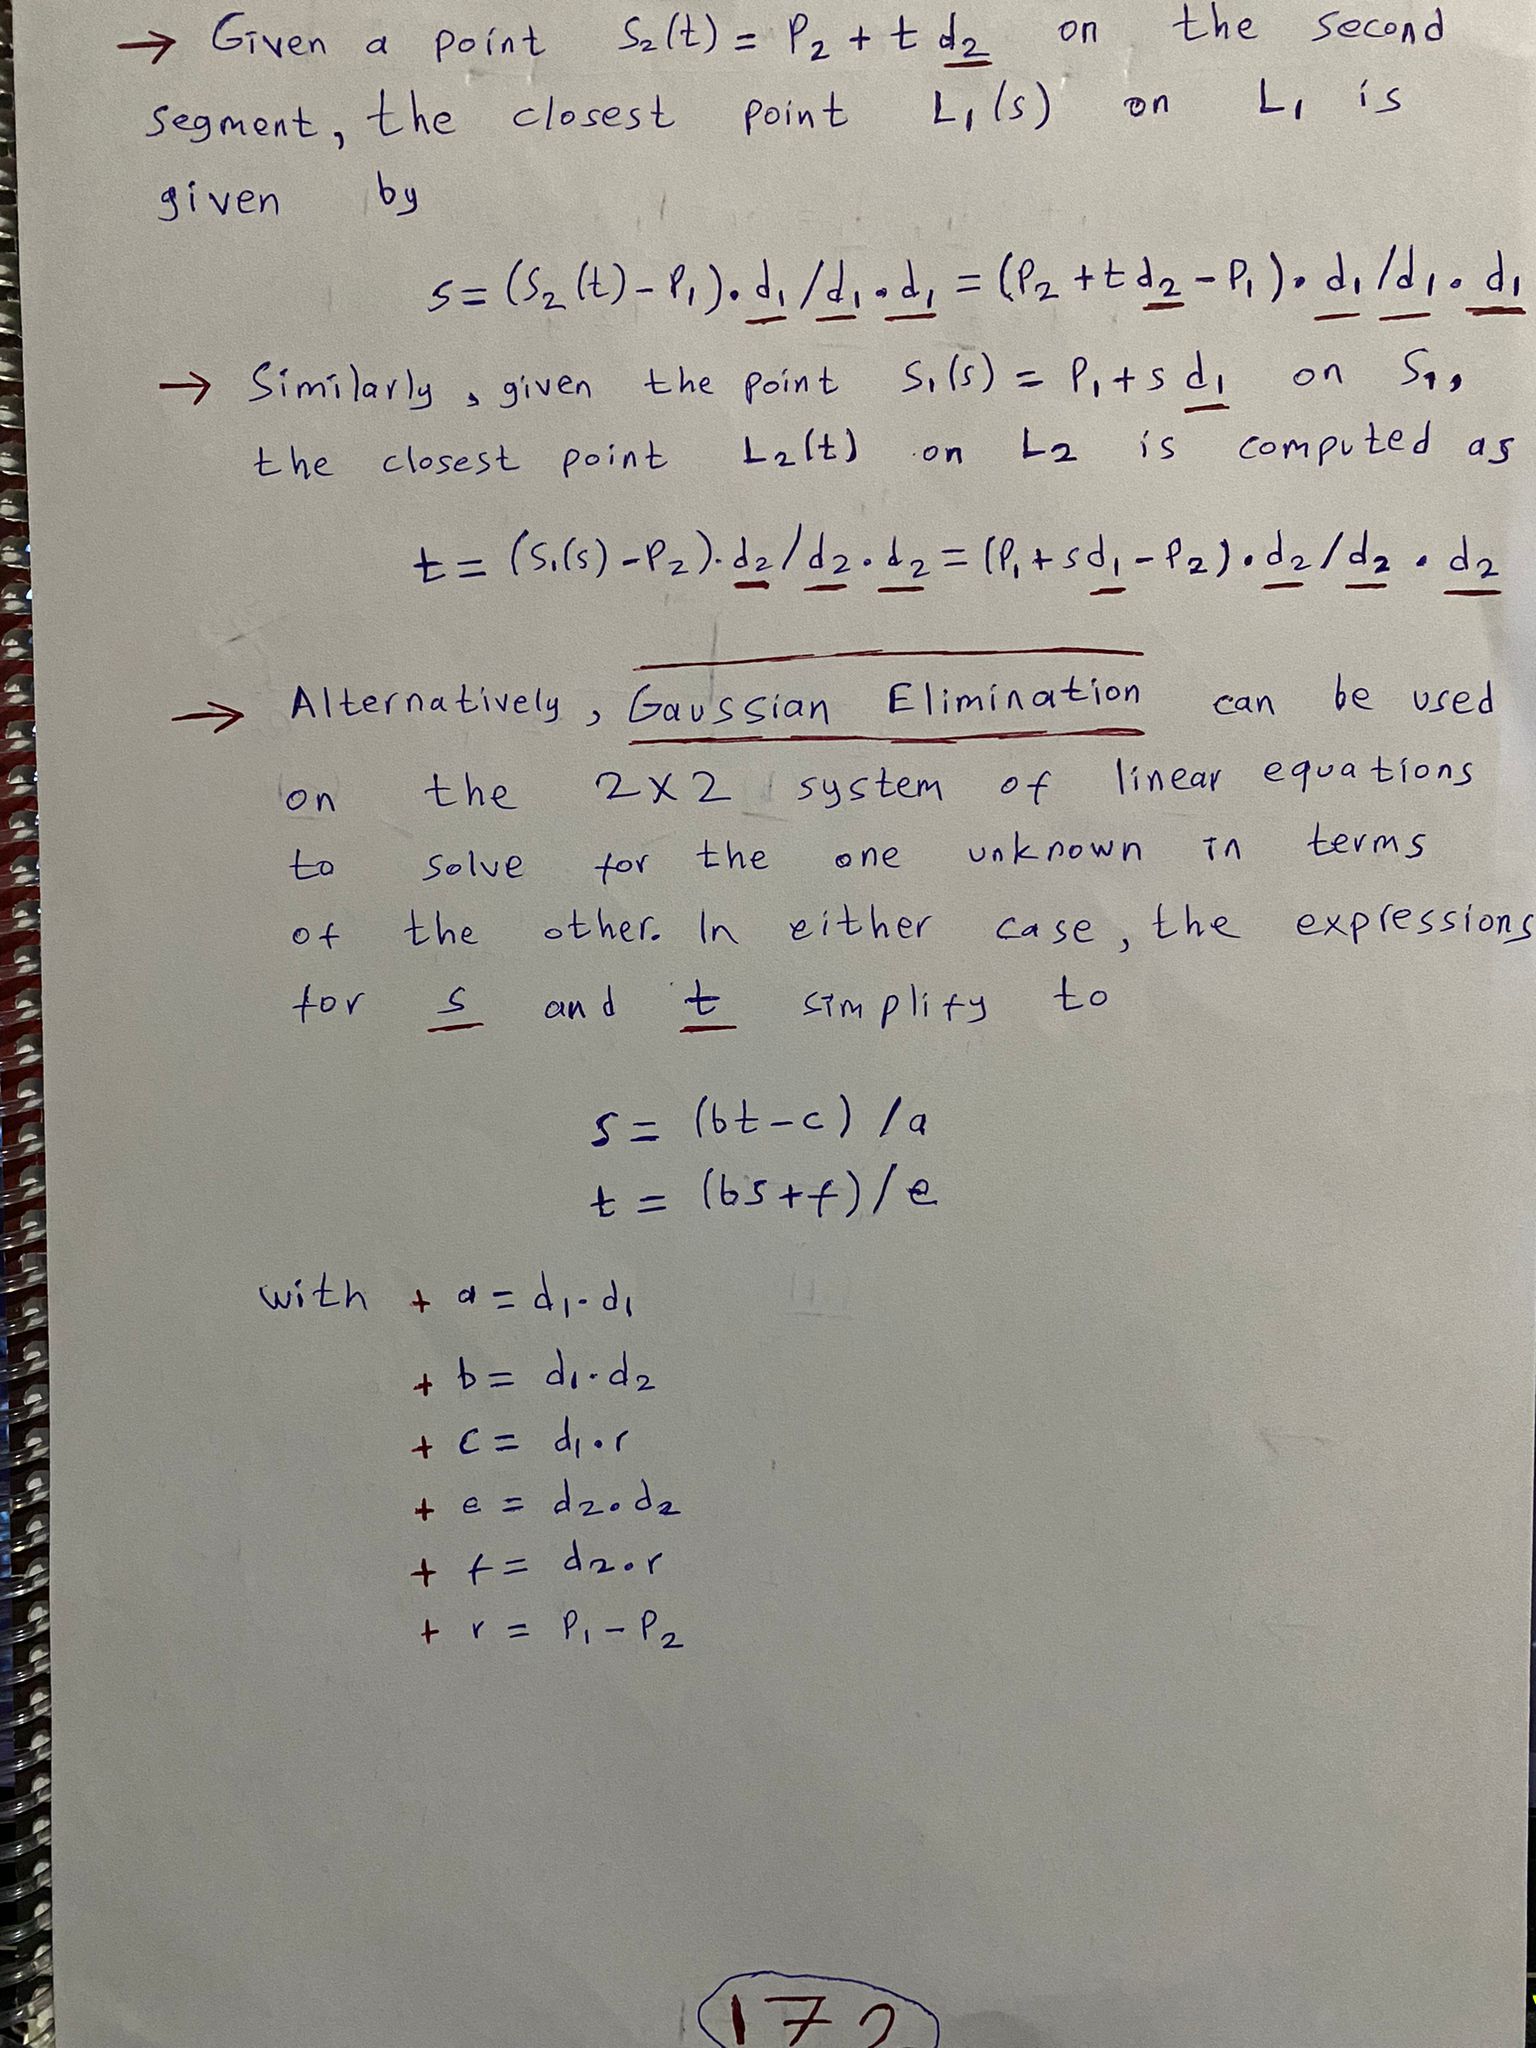 → Given a point S₂(t) = P₂ + t d₂ on the second
segment, the closest point L₁(s) on L₁ is
given by
s = (S₂(t) - P₁) • d₁ / d₁ • d₁ = (P₂ + t d₂ - P₁) • d₁ / d₁ • d₁
→ Similarly, given the point S₁(s) = P₁ + s d₁ on S₁,
the closest point L₂(t) on L₂ is computed as
t = (S₁(s) - P₂) • d₂ / d₂ • d₂ = (P₁ + s d₁ - P₂) • d₂ / d₂ • d₂
→ Alternatively, Gaussian Elimination can be used
on the 2x2 system of linear equations
to solve for the one unknown in terms
of the other. In either case, the expressions
for s and t simplify to
s = (bt - c) / a
t = (bs + f) / e
with + a = d₁ • d₁
+ b = d₁ • d₂
+ c = d₁ • r
+ e = d₂ • d₂
+ f = d₂ • r
+ r = P₁ - P₂